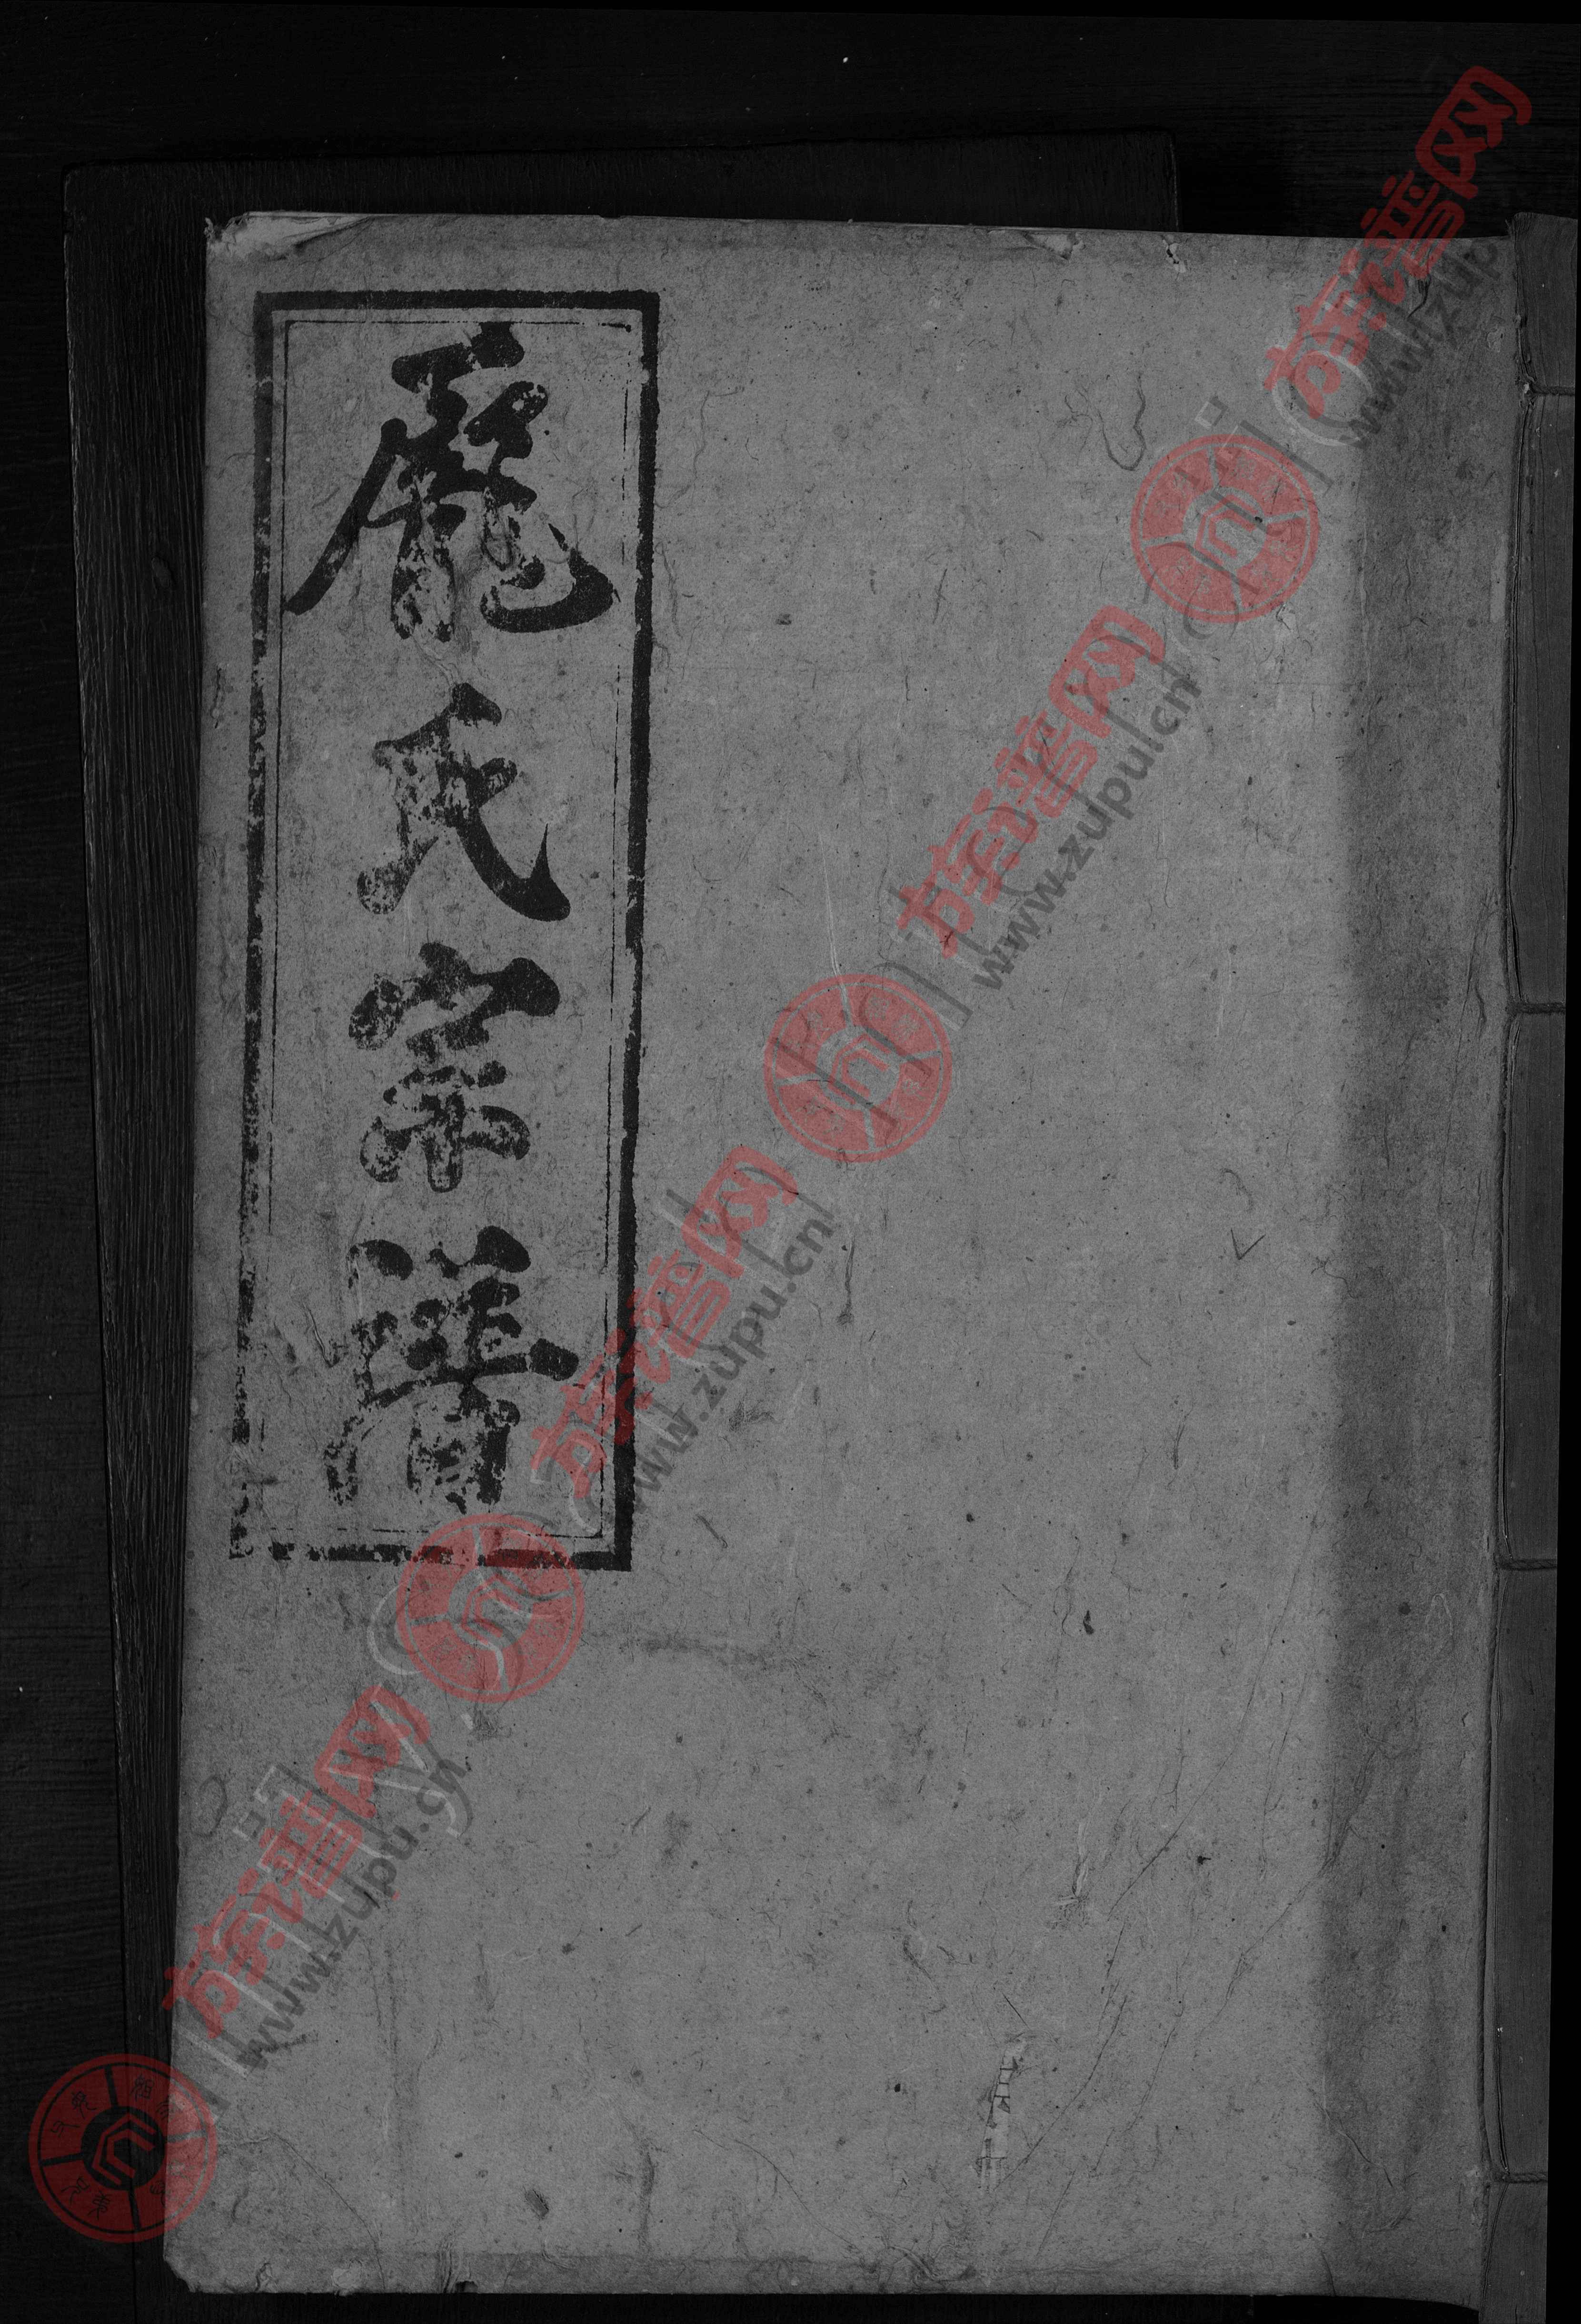 龎氏宗譜
族谱网
www.zupu.cn
族谱网
www.zupu.cn
族谱网
www.zupu.cn
族谱网
www.zupu.cn